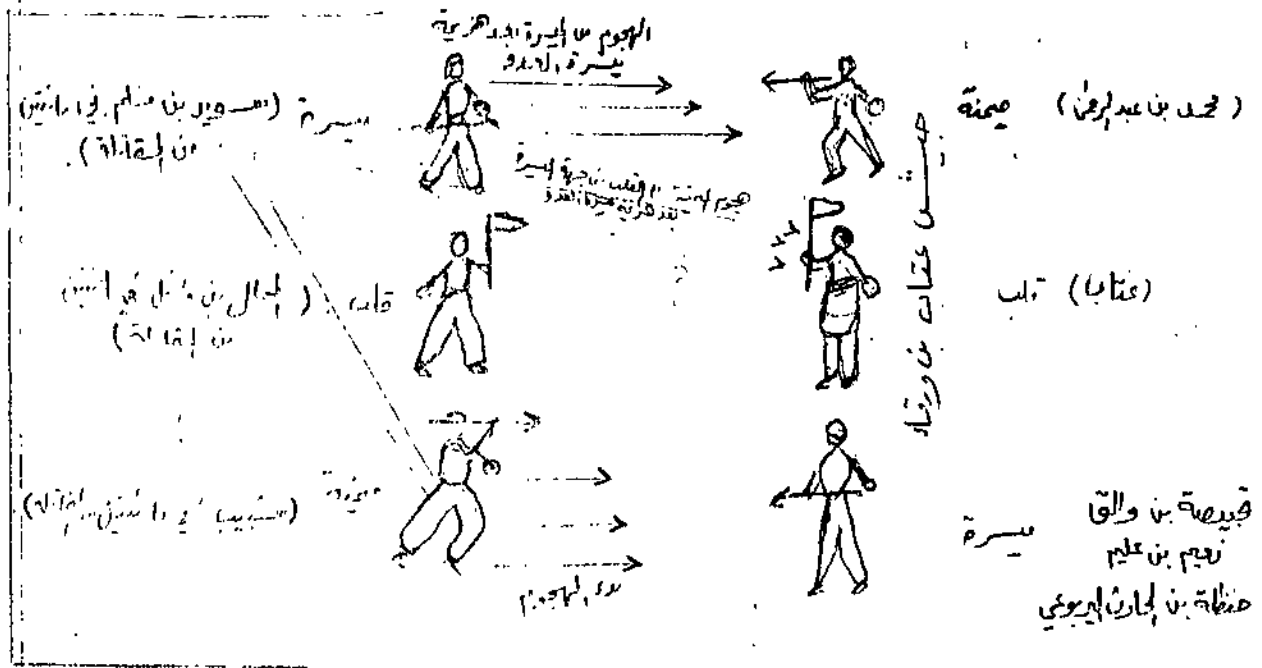 الهجوم من الميسرة بعد هزيمة
ميسرة العدو
(محمد بن عبدالرحمن) ميمنة
ميسرة (سويد بن سليم في مائتين
من المقاتلة).
هجوم الميمنة و القلب من جهة الميسرة
بعد هزيمة ميسرة العدو
جيش عتاب بن ورقاء
(عتاب) قلب
قلب (المحلل بن وائل في مائتين
من المقاتلة)
ميمنة (شبيب في مائتين من المقاتلة)
بدء الهجوم
ميسرة
قبيصة بن والق
نعيم بن عليم
حنظلة بن الحارث اليربوعي